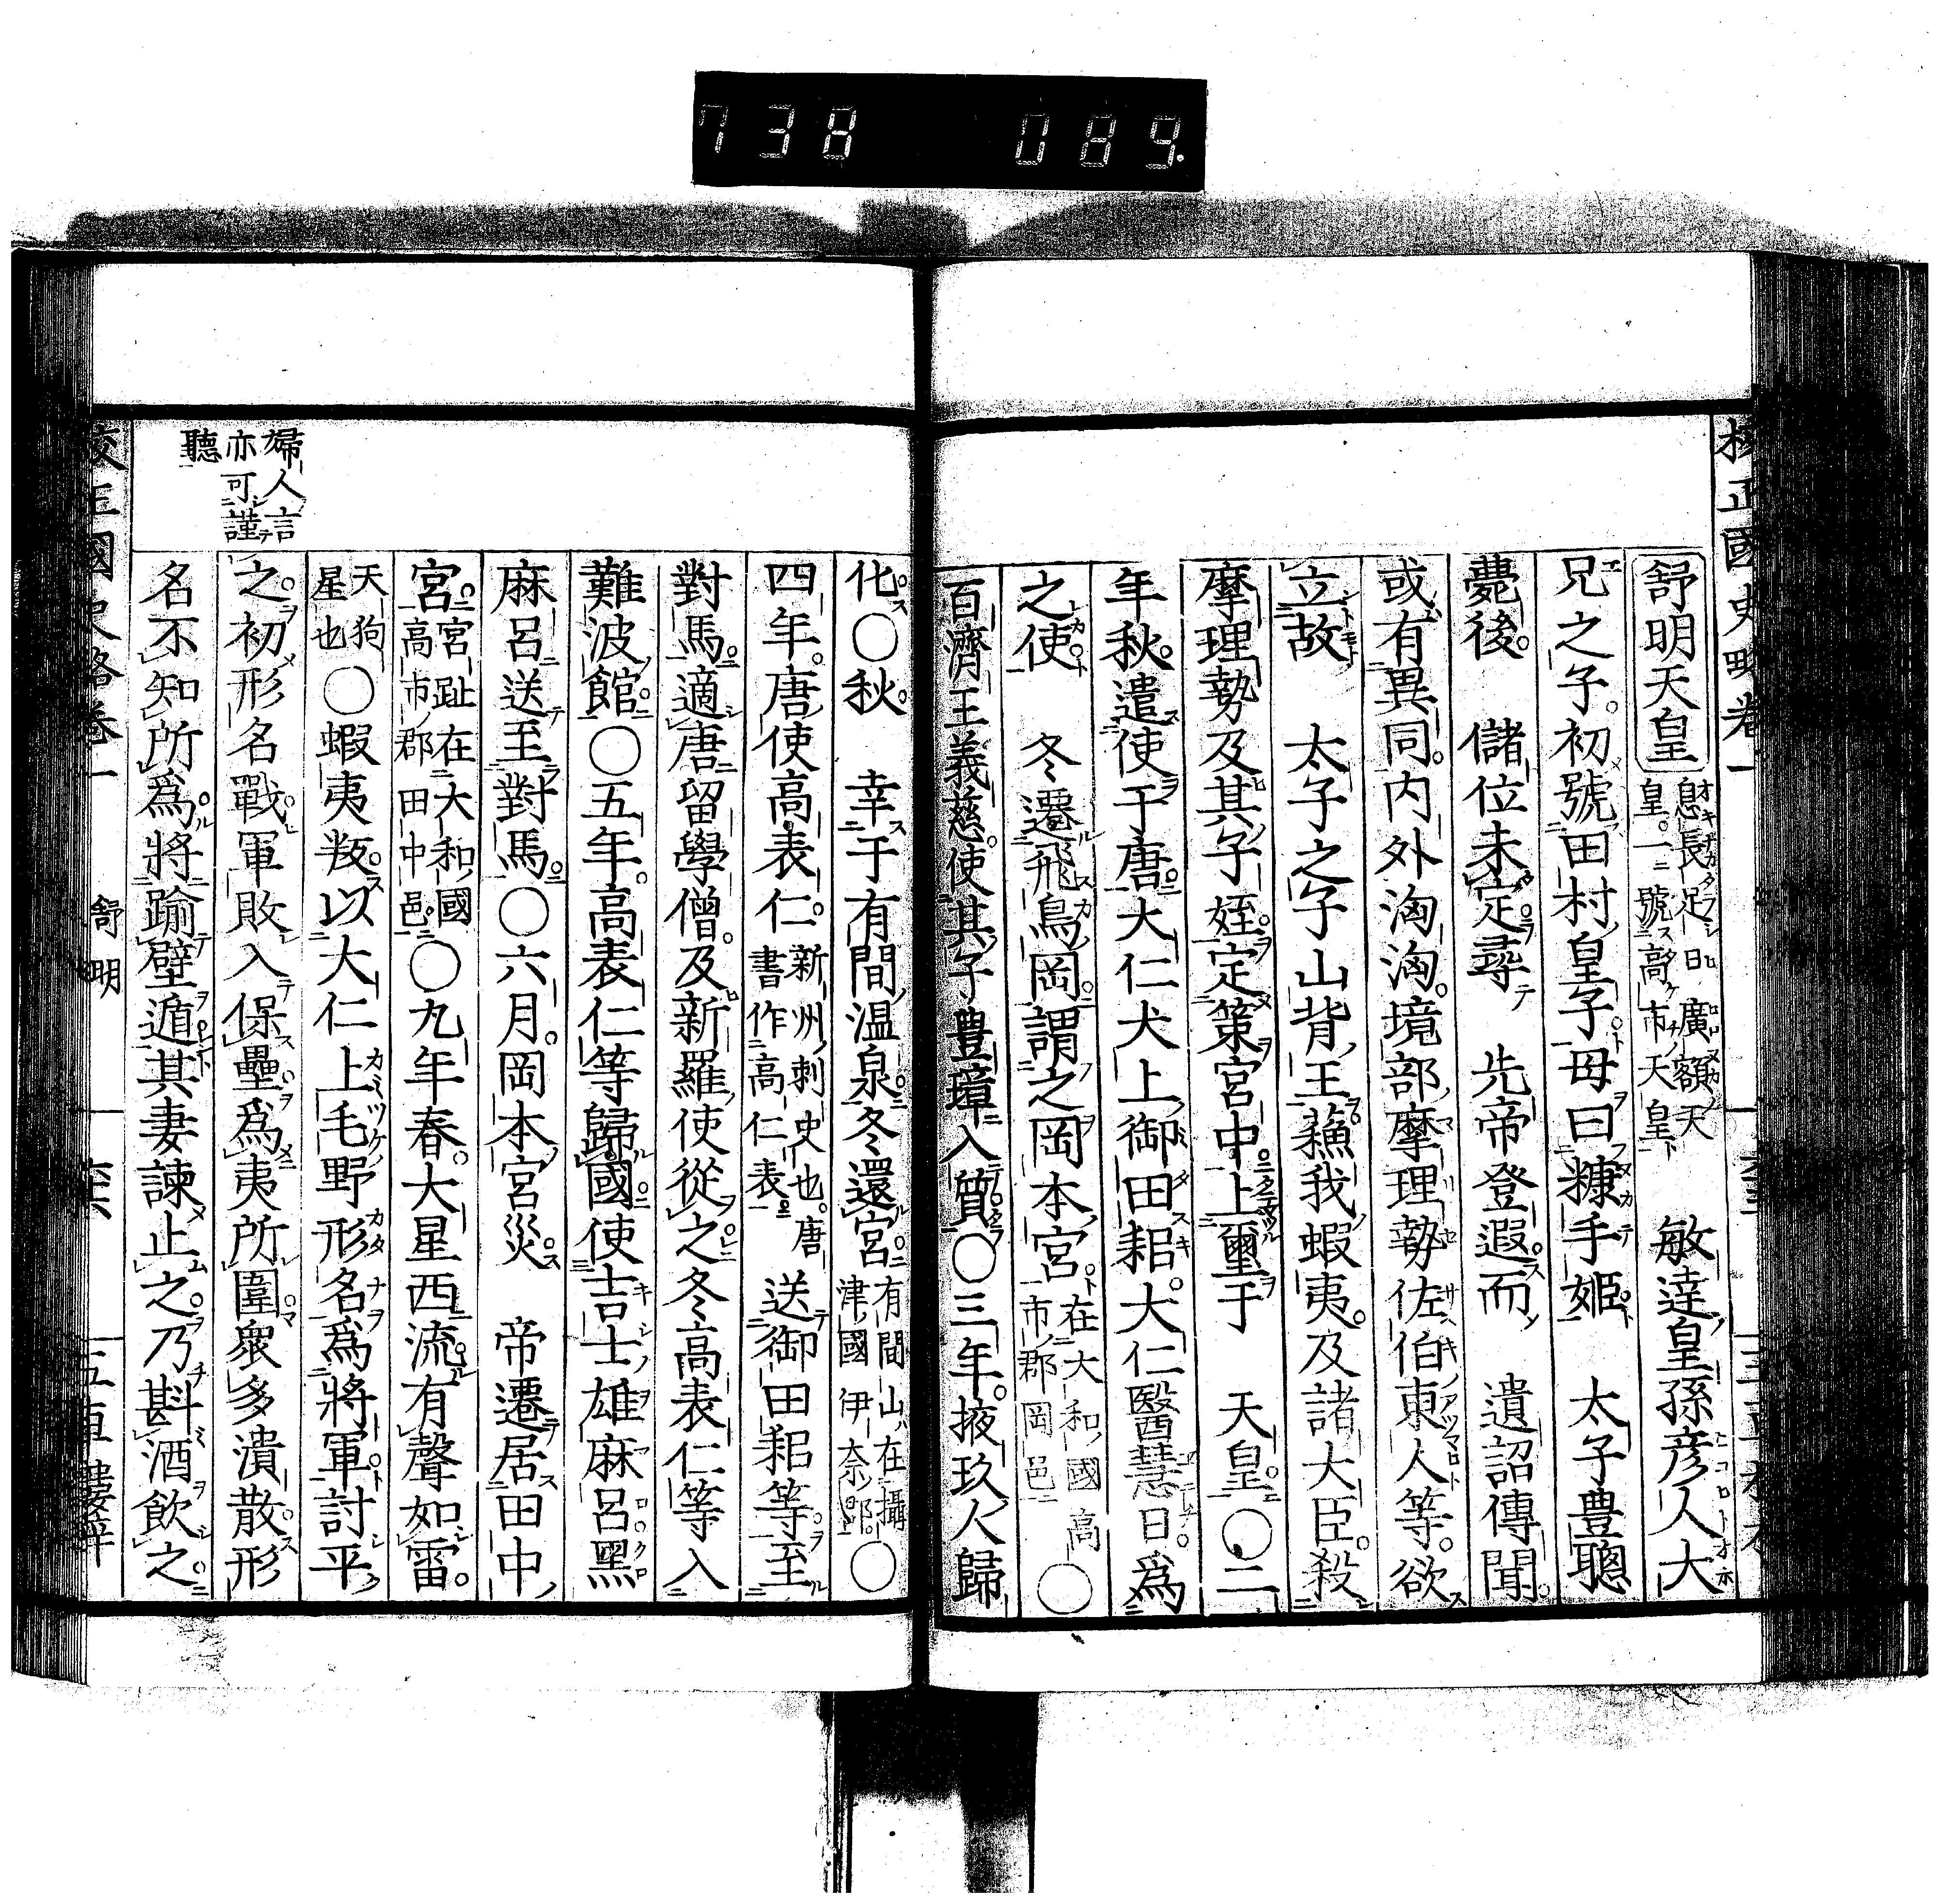 738 089.
校正國史略卷一
舒明天皇 息長足日廣額天皇一號高市天皇 敏達皇孫彦人大
兄之子初號田村皇子母曰糠手姬 太子豊聰
薨後 儲位未定尋 先帝登遐而 遺詔傳聞
或有異同内外洶洶境部摩理勢佐伯東人等欲
立故 太子之子山背王蘓我蝦夷及諸大臣殺
摩理勢及其子姪定策宮中上璽于 天皇〇二
年秋遣使于唐大仁犬上御田耜大仁醫慧日爲
之使 冬遷飛鳥岡謂之岡本宮 在大和國高市郡岡邑〇
百濟王義慈使其子豊璋入質〇三年掖玖人歸
化〇秋 幸于有間温泉冬還宮 有間山在攝津國伊奈郡〇
四年唐使高表仁 新州刺史也唐書作高仁表 送御田耜等至
對馬適唐留學僧及新羅使從之冬高表仁等入
難波館〇五年高表仁等歸國使吉士雄麻呂黑
麻呂送至對馬〇六月岡本宮災 帝遷居田中
宮 宮趾在大和國高市郡田中邑〇九年春大星西流有聲如雷
天狗星也〇蝦夷叛以大仁上毛野形名爲將軍討平
之初形名戰軍敗入保壘爲夷所圍衆多潰散形
名不知所爲將踰壁遁其妻諫止之乃斟酒飲之
婦人言
亦可謹
聽
校正國史略卷一 舒明